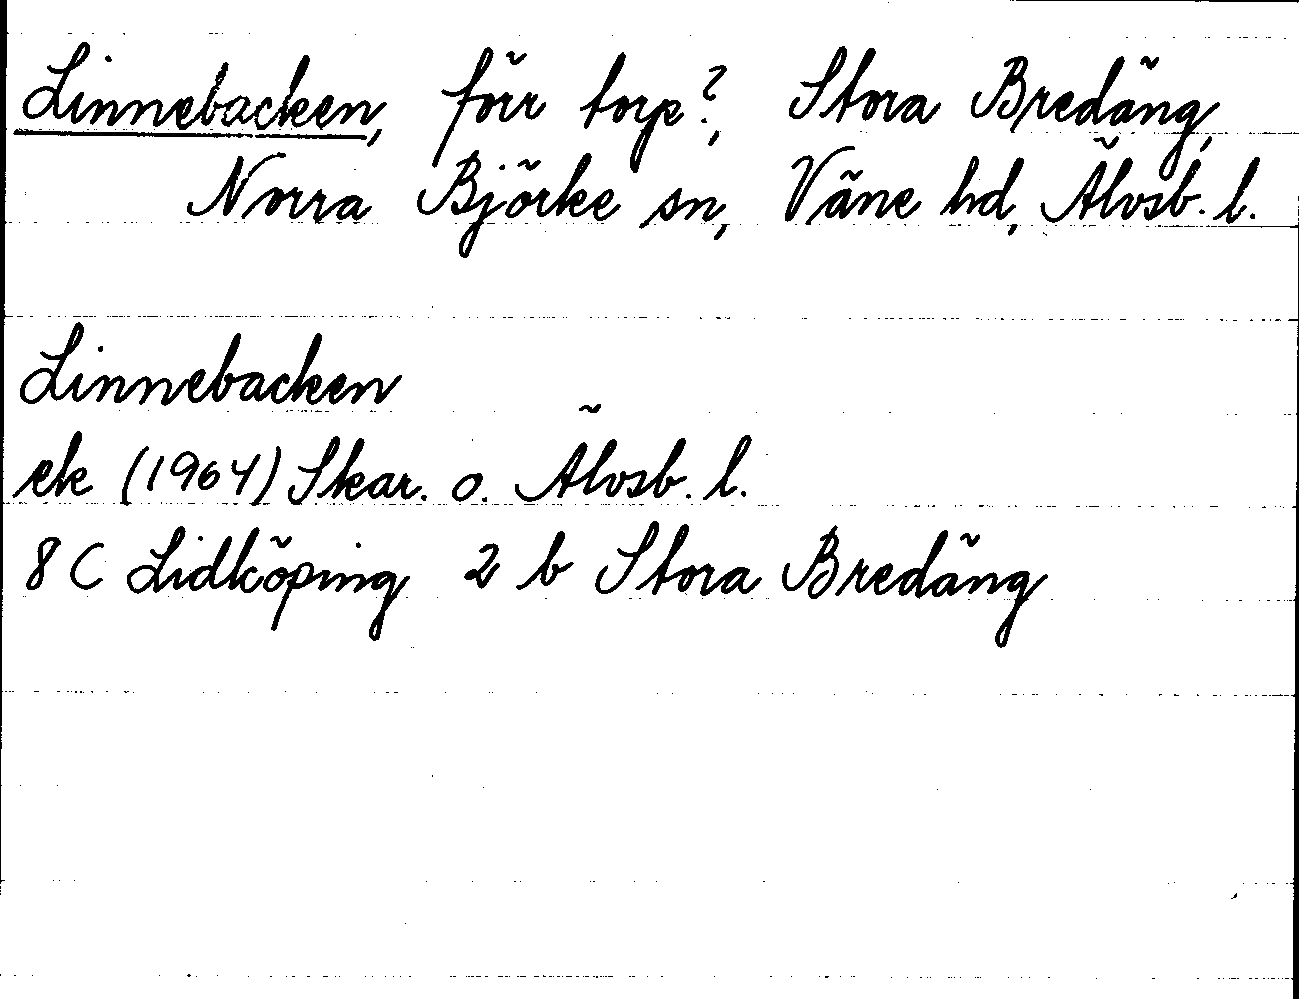 Linnebacken, förr torp?, Stora Bredäng,
Norra Björke sn, Väne hd, Älvsb. l.
Linnebacken
ek (1964) Skar. o. Älvsb. l.
8 C Lidköping 2 b Stora Bredäng